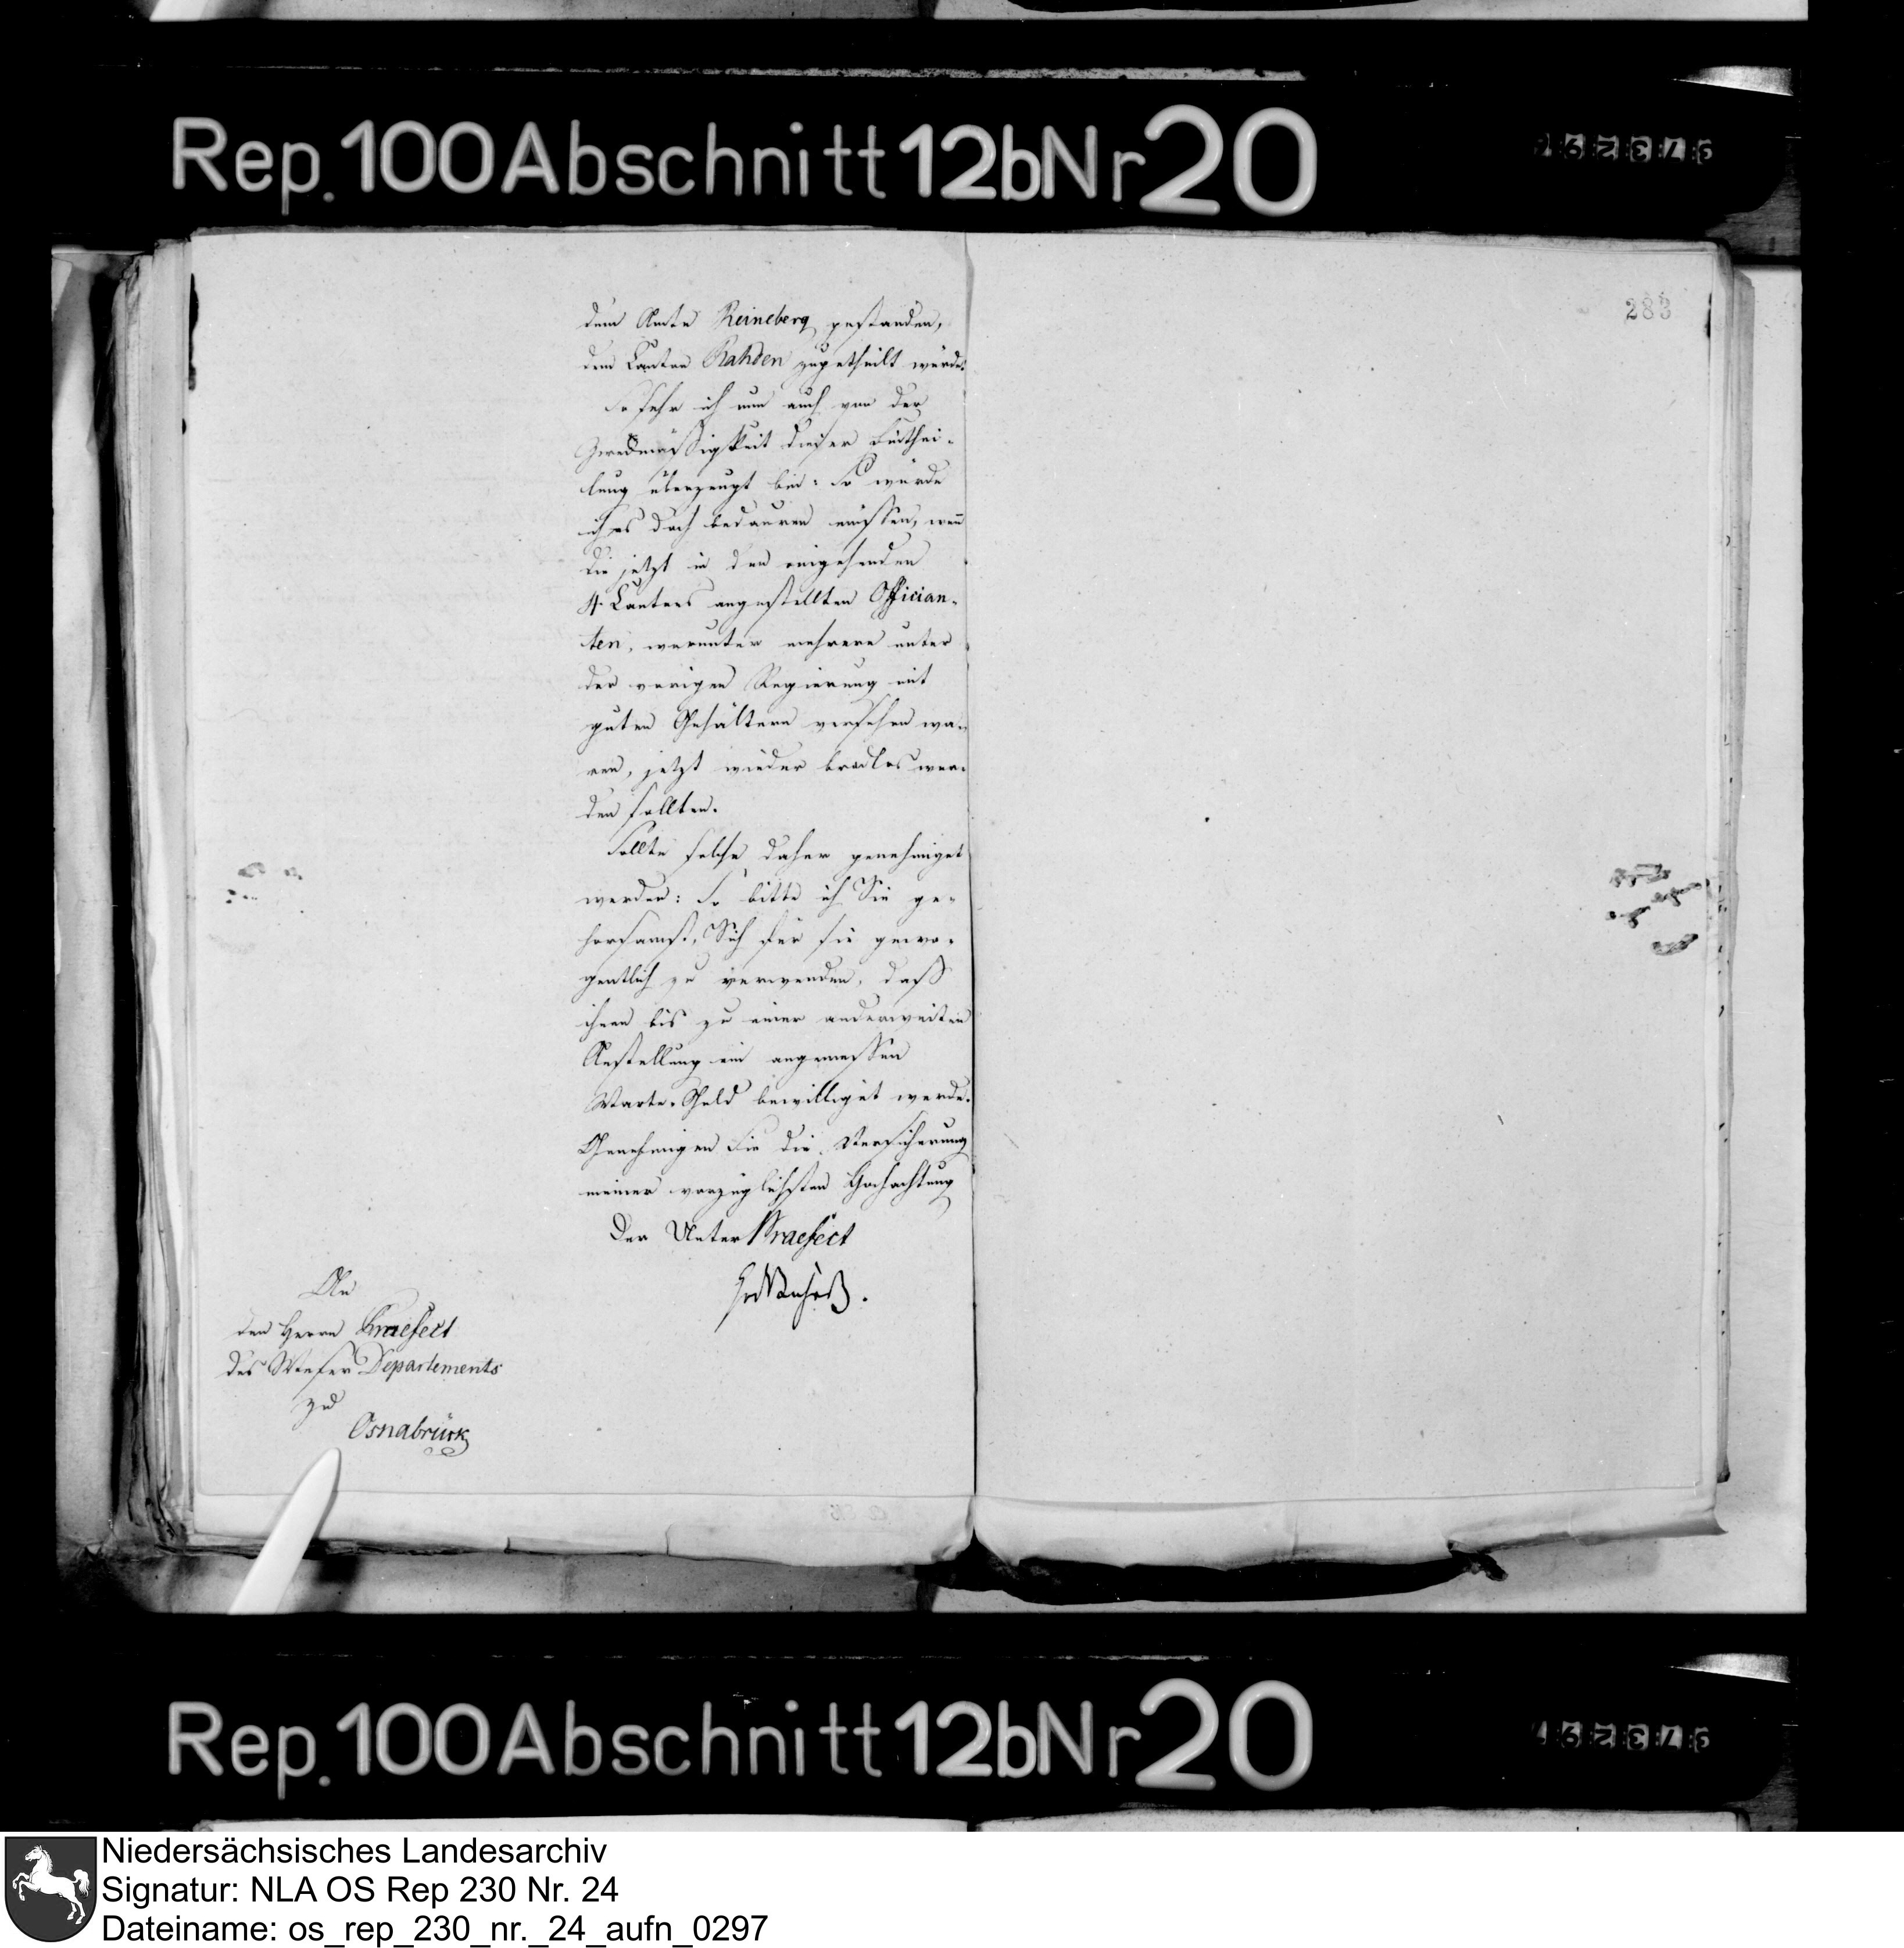 Rep. 100 Abschnitt 12b Nr 20
283
dem Amte Reineberg gestanden,
dem Canton Rahden zugetheilt würde.
So sehr ich nun auch von der
Zweckmäßigkeit dieser Einthei-
lung überzeugt bin: So würde
ich es doch bedauren müssen, wenn
die jetzt in den eingehenden
4. Cantons angestellten Offician-
ten, worunter mehrere unter
der vorigen Regierung mit
guten Gehältern versehen wa-
ren, jetzt wieder brodlos wer-
den sollten.
Sollte solche daher genehmiget
werden: So bitte ich Sie ge-
horsamst, Sich für sie gewo-
gentlich zu verwenden, daß
ihnen bis zu einer anderweiten
Anstellung ein angemessen
Warte-Geld bewilliget werde.
Genehmigen Sie die Versicherung
meiner vorzüglichsten Hochachtung
Der Unter Praefect
An
den Herrn Praefect
des Weser Departements
zu
Osnabrück
Rep. 100 Abschnitt 12b Nr 20
Niedersächsisches Landesarchiv
Signatur: NLA OS Rep 230 Nr. 24
Dateiname: os_rep_230_nr._24_aufn_0297